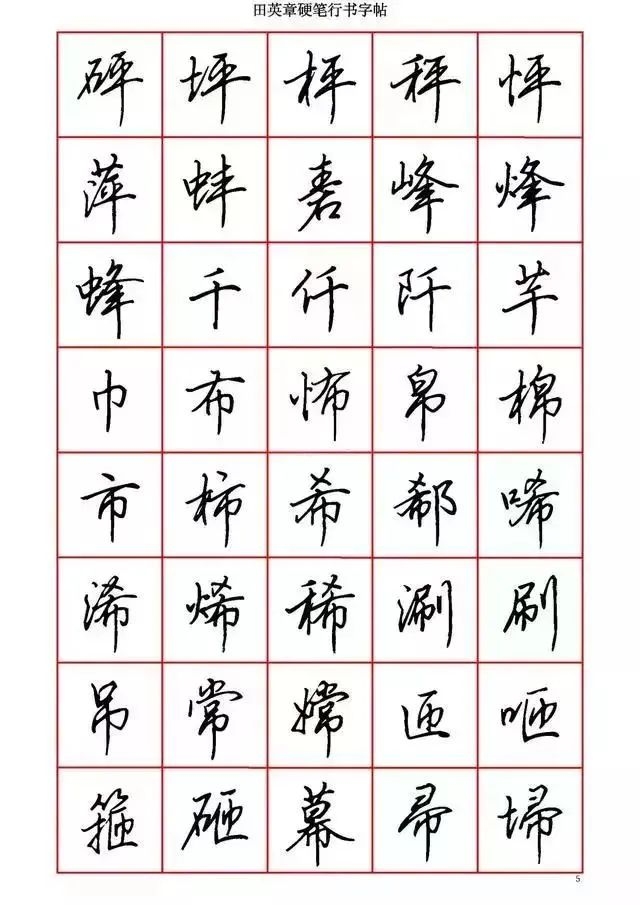 田英章硬笔行书字帖
砰 坪 枰 秤 怦
萍 蚌 砉 峰 烽
蜂 千 仟 阡 芊
巾 布 怖 帛 棉
市 柿 希 郗 唏
浠 烯 稀 涮 刷
吊 常 嫦 匝 咂
箍 砸 幕 帚 埽
5